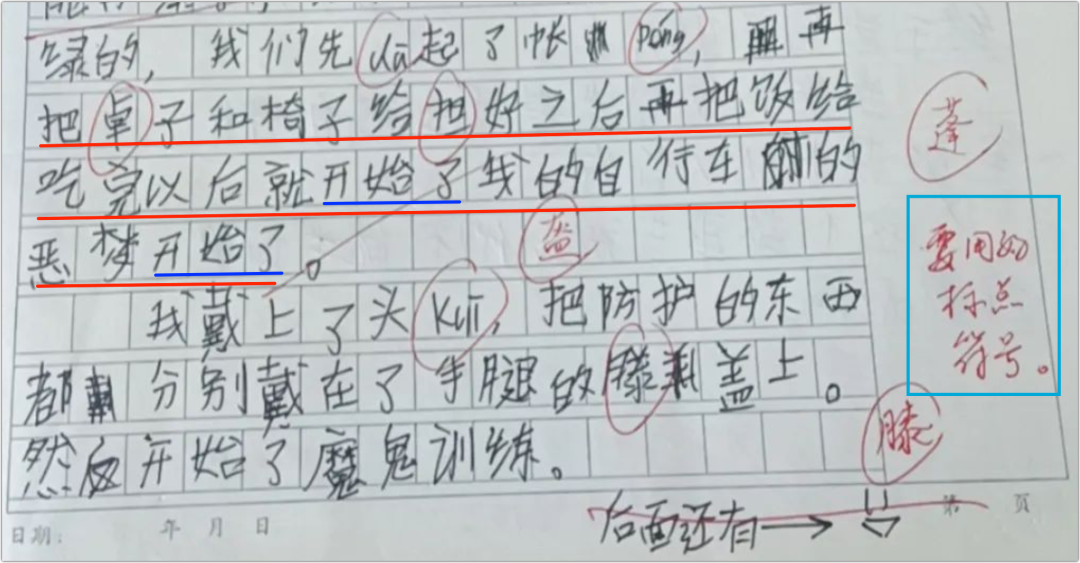 绿的，我们先dā起了帐péng，再
把卓子和椅子给担好之后再把饭给
吃完以后就开始了我的自行车的
恶梦开始了。
我戴上了头Kuī，把防护的东西
都分别戴在了手腿的膝盖上。
然后开始了魔鬼训练。
后面还有→
蓬
盔
要用好
标点
符号。
膝
日期： 年 月 日
第 页